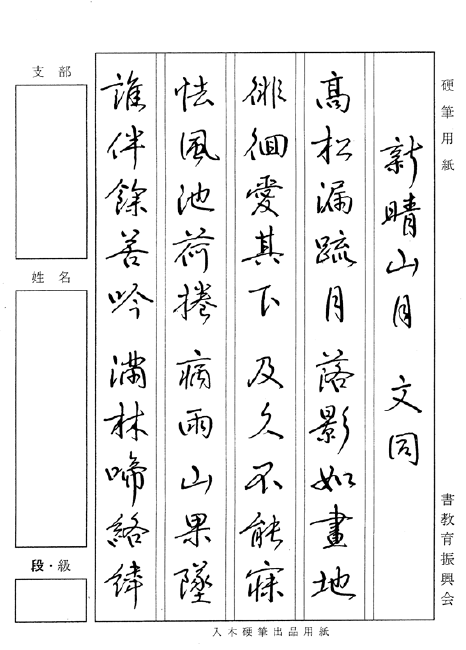 硬筆用紙
書教育振興会
新晴山月 文同
高松漏疏月 落影如畫地
徘徊愛其下 及久不能寐
怯風池荷捲 病雨山果墜
誰伴餘苦吟 滿林啼絡緯
支部
姓名
段・級
入木硬筆出品用紙